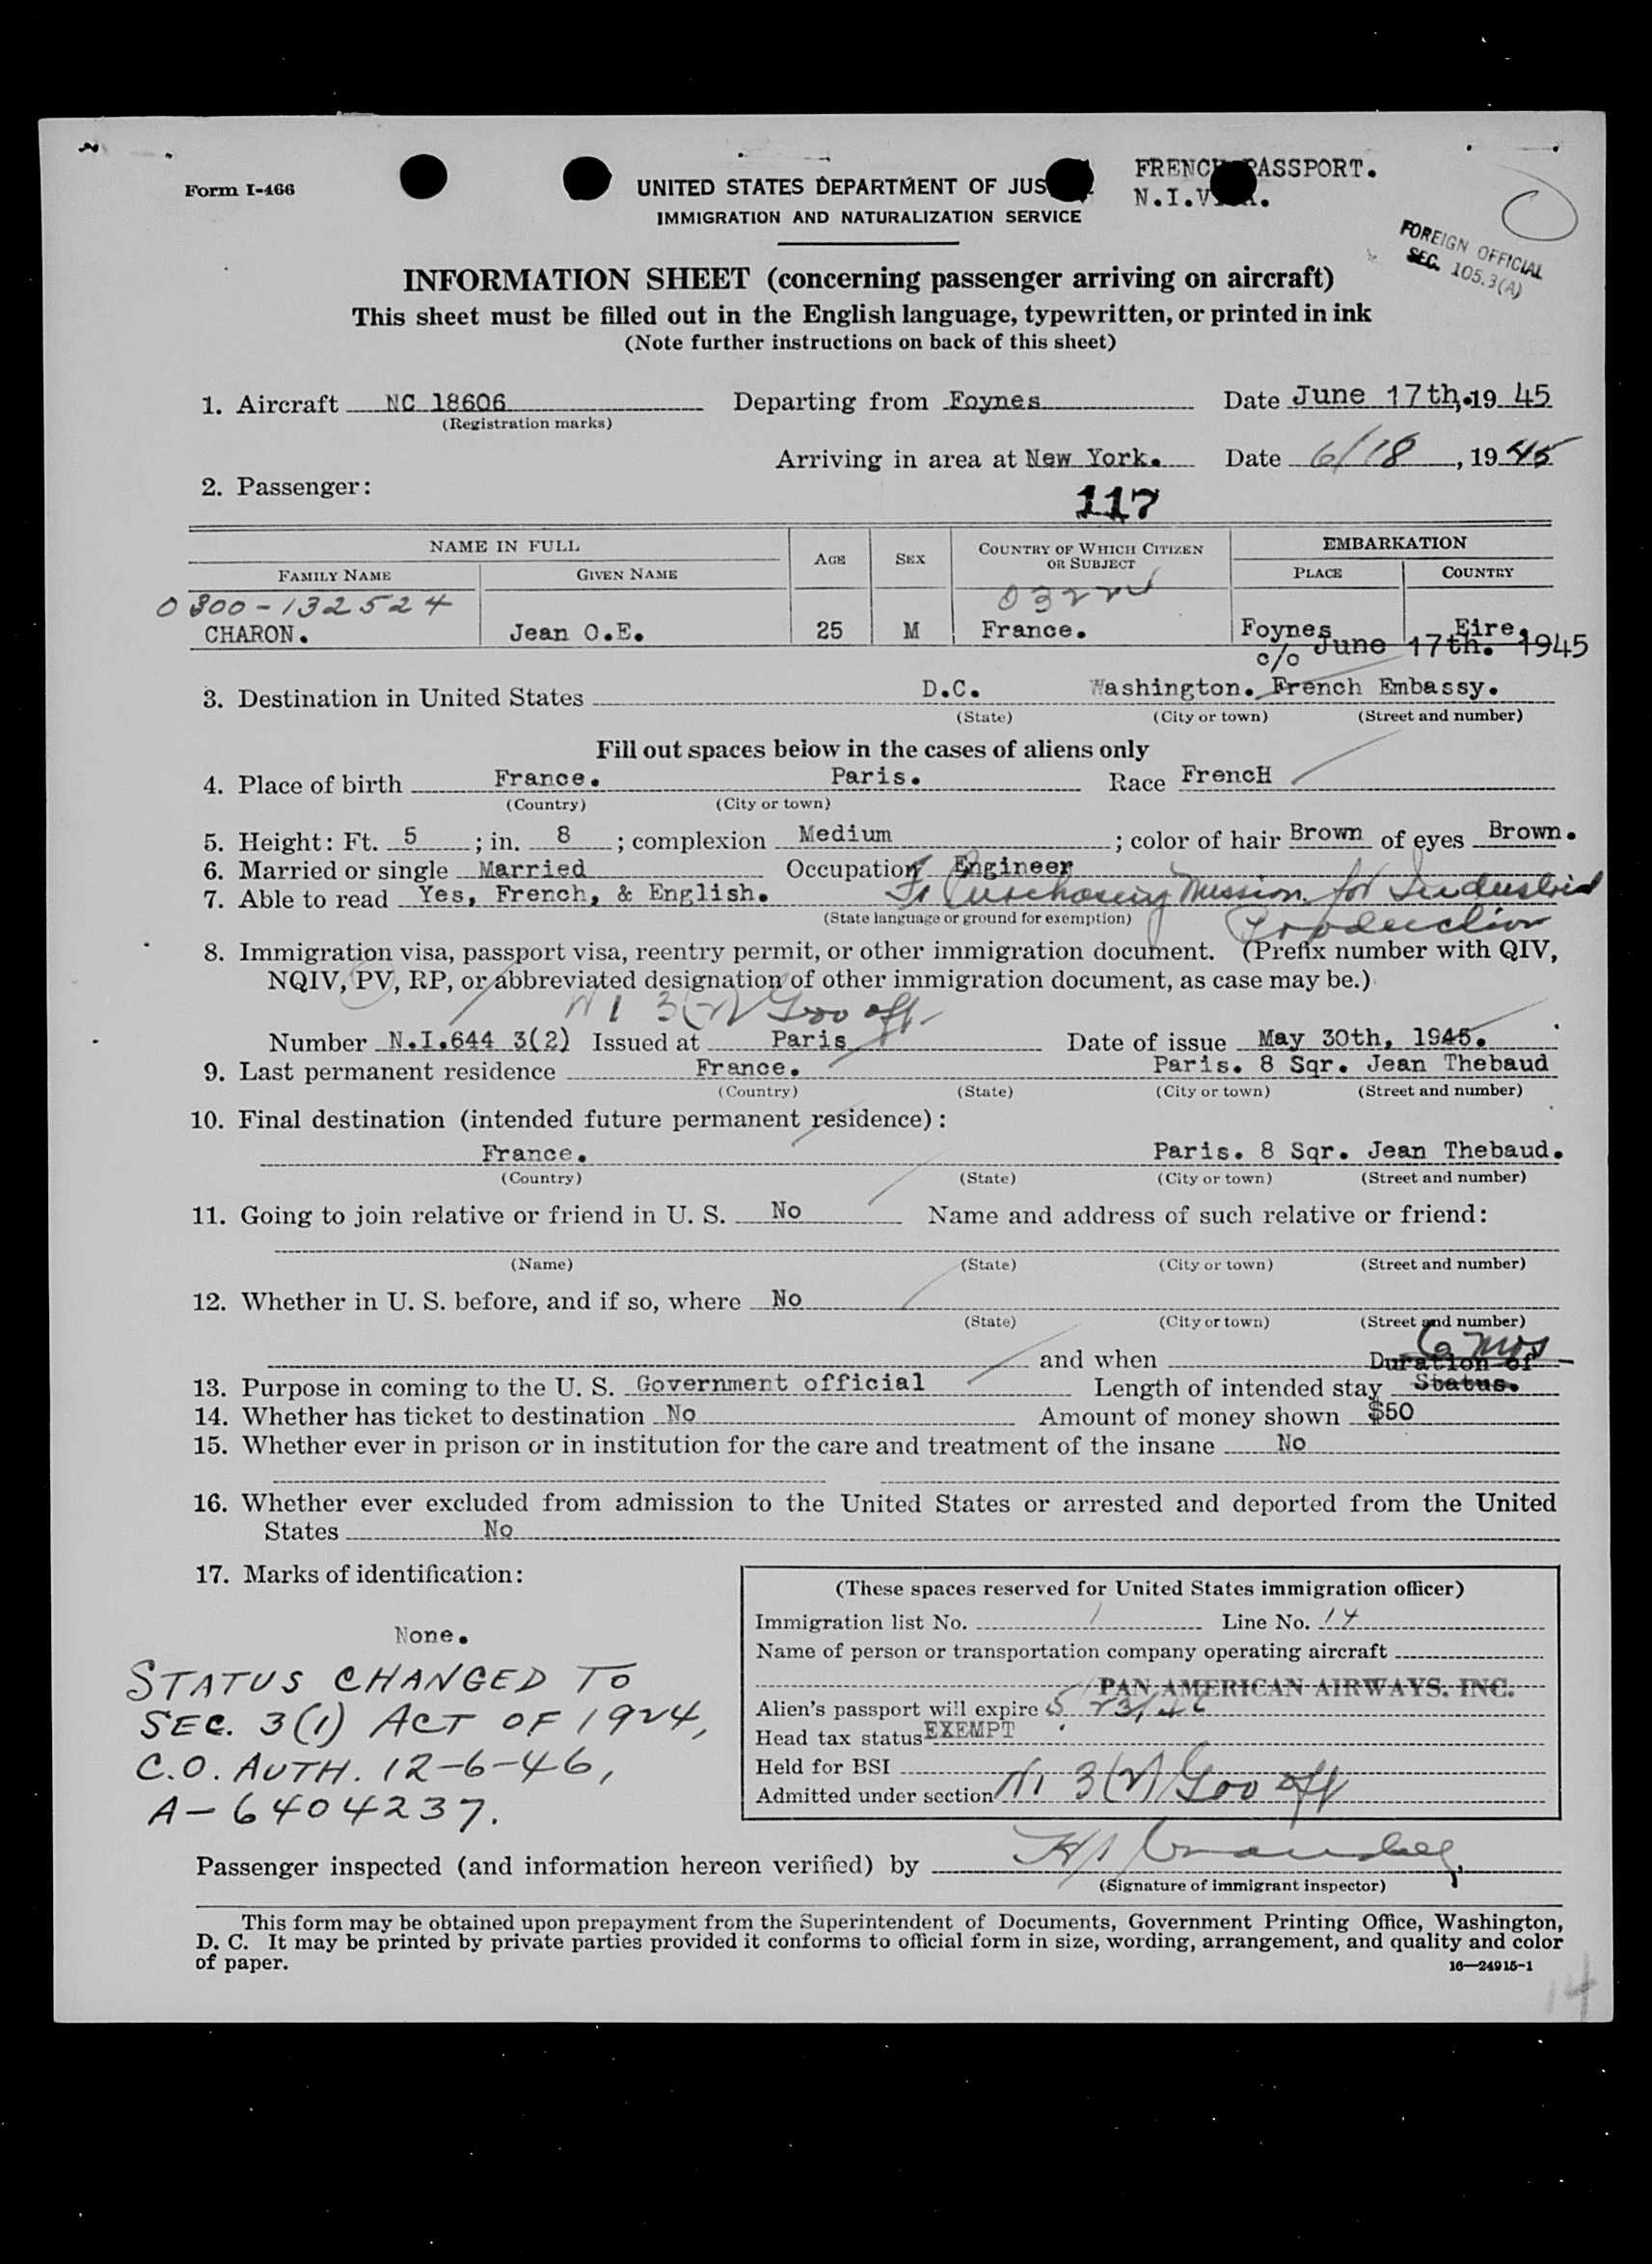 FRENCH PASSPORT.
Form I-466
UNITED STATES DEPARTMENT OF JUS
N.I.V
IMMIGRATION AND NATURALIZATION SERVICE
FOREIGN OFFICIAL
SEC. 105.3(A)
INFORMATION SHEET (concerning passenger arriving on aircraft)
This sheet must be filled out in the English language, typewritten, or printed in ink
(Note further instructions on back of this sheet)
1. Aircraft NC 18606 Departing from Foynes Date June 17th, 19 45
(Registration marks)
Arriving in area at New York. Date 6/18, 19 45
2. Passenger:
117
NAME IN FULL AGE SEX COUNTRY OF WHICH CITIZEN OR SUBJECT EMBARKATION
FAMILY NAME GIVEN NAME PLACE COUNTRY
0300-132524
CHARON. Jean O.E. 25 M France. Foynes Eire.
c/o June 17th. 1945
3. Destination in United States D.C. Washington. French Embassy.
(State) (City or town) (Street and number)
Fill out spaces below in the cases of aliens only
4. Place of birth France. Paris. Race FrencH
(Country) (City or town)
5. Height: Ft. 5; in. 8; complexion Medium; color of hair Brown of eyes Brown.
6. Married or single Married Occupation Engineer
7. Able to read Yes, French, & English. Fr Purchasing Mission for Industrial
(State language or ground for exemption) Production
8. Immigration visa, passport visa, reentry permit, or other immigration document. (Prefix number with QIV,
NQIV, PV, RP, or abbreviated designation of other immigration document, as case may be.)
NI 3(2) Gov off.
Number N.I.644 3(2) Issued at Paris Date of issue May 30th, 1945.
9. Last permanent residence France. Paris. 8 Sqr. Jean Thebaud
(Country) (State) (City or town) (Street and number)
10. Final destination (intended future permanent residence):
France. Paris. 8 Sqr. Jean Thebaud.
(Country) (State) (City or town) (Street and number)
11. Going to join relative or friend in U. S. No Name and address of such relative or friend:
(Name) (State) (City or town) (Street and number)
12. Whether in U. S. before, and if so, where No
(State) (City or town) (Street and number)
6 mos
and when Duration of
13. Purpose in coming to the U. S. Government official Length of intended stay Status.
14. Whether has ticket to destination No Amount of money shown $50
15. Whether ever in prison or in institution for the care and treatment of the insane No
16. Whether ever excluded from admission to the United States or arrested and deported from the United
States No
17. Marks of identification:
None.
STATUS CHANGED TO
SEC. 3(1) ACT OF 1924,
C.O. AUTH. 12-6-46,
A-6404237.
(These spaces reserved for United States immigration officer)
Immigration list No. 1 Line No. 14
Name of person or transportation company operating aircraft
PAN AMERICAN AIRWAYS. INC.
Alien's passport will expire 5/23/46
Head tax status EXEMPT
Held for BSI
Admitted under section NI 3(2) Gov off
Passenger inspected (and information hereon verified) by
(Signature of immigrant inspector)
This form may be obtained upon prepayment from the Superintendent of Documents, Government Printing Office, Washington,
D. C. It may be printed by private parties provided it conforms to official form in size, wording, arrangement, and quality and color
of paper.
16—24915-1
14